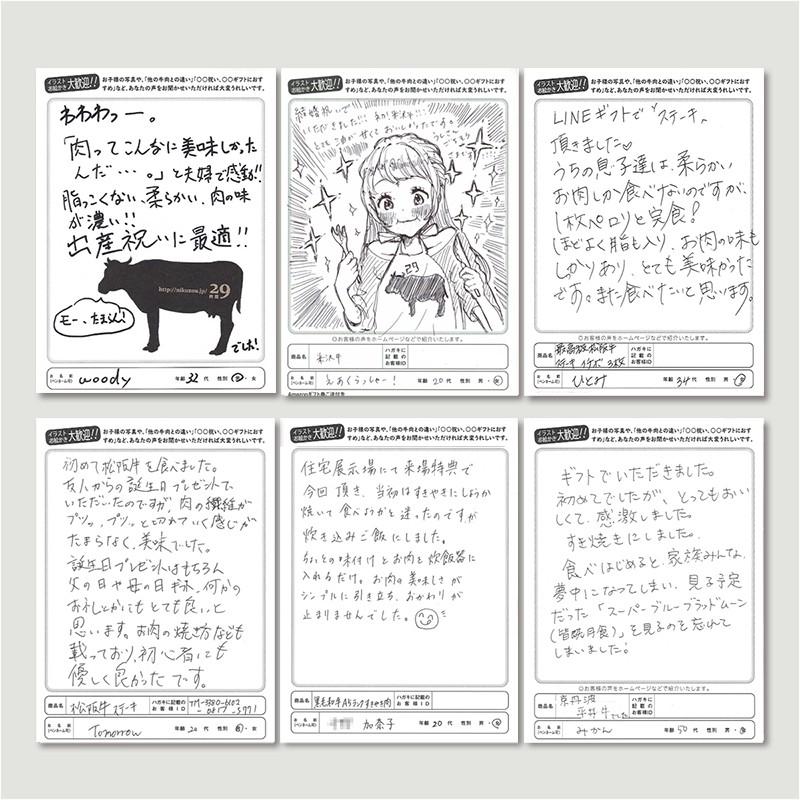 イラスト お絵かき 大歓迎!!
お子様の写真や、「他の牛肉との違い」「〇〇祝い、〇〇ギフトにおす
すめ」など、あなたの声をお聞かせいただければ大変うれしいです。
わわわっー。
「肉ってこんなに美味しかった
んだ…。」と夫婦で感動!!
脂っこくない、柔らかい、肉の味
が濃い!!
出産祝いに最適!!
http://nikuzou.jp/ 29
モー、たまらん!
でしょ!
お名前
(ペンネーム可)
woody
年齢 32 代 性別 男・女
イラスト お絵かき 大歓迎!!
お子様の写真や、「他の牛肉との違い」「〇〇祝い、〇〇ギフトにおす
すめ」など、あなたの声をお聞かせいただければ大変うれしいです。
結婚祝いで
いただきました!!!
29
◎お客様の声をホームページなどで紹介いたします。
商品名 米沢牛
ハガキに
記載の
お客様ID
お名前
(ペンネーム可)
えあくらっしゃー!
年齢 20 代 性別 男・女
イラスト お絵かき 大歓迎!!
お子様の写真や、「他の牛肉との違い」「〇〇祝い、〇〇ギフトにおす
すめ」など、あなたの声をお聞かせいただければ大変うれしいです。
LINEギフトで"ステーキ"
頂きました♡
うちの息子達は、柔らかい
お肉しか食べないのですが、
1枚ペロリと完食!
ほどよく脂も入り、お肉の味も
しっかりあり、とても美味かった
です。また食べたいと思います。
◎お客様の声をホームページなどで紹介いたします。
商品名 最高級松阪牛
ステーキ イチボ 3枚
ハガキに
記載の
お客様ID
お名前
(ペンネーム可)
ひとみ
年齢 34 代 性別 男・女
イラスト お絵かき 大歓迎!!
お子様の写真や、「他の牛肉との違い」「〇〇祝い、〇〇ギフトにおす
すめ」など、あなたの声をお聞かせいただければ大変うれしいです。
初めて松阪牛を食べました。
友人からの誕生日プレゼントで
いただいたのですが、肉の繊維が
プツッ、プツッと切れていく感じが
たまらなく、美味でした。
誕生日プレゼントはもちろん
父の日や母の日ギフト、何かの
お礼とかにもとても良いと
思います。お肉の焼き方なども
載っており、初心者にも
優しく良かったです。
商品名 松阪牛ステーキ
ハガキに記載の
お客様ID
お名前
(ペンネーム可)
Tomorrow
年齢 20 代 性別 男・女
イラスト お絵かき 大歓迎!!
お子様の写真や、「他の牛肉との違い」「〇〇祝い、〇〇ギフトにおす
すめ」など、あなたの声をお聞かせいただければ大変うれしいです。
住宅展示場にて来場特典で
今回頂き、当初はすきやきにしようか
焼いて食べようかと迷ったのですが
炊き込みご飯にしました。
ちょっとの味付けとお肉を炊飯器に
入れるだけ。お肉の美味しさが
シンプルに引き立ち、おかわりが
止まりませんでした。
商品名 黒毛和牛A5ランクすきやき肉
ハガキに記載の
お客様ID
お名前
(ペンネーム可)
加奈子
年齢 20 代 性別 男・女
イラスト お絵かき 大歓迎!!
お子様の写真や、「他の牛肉との違い」「〇〇祝い、〇〇ギフトにおす
すめ」など、あなたの声をお聞かせいただければ大変うれしいです。
ギフトでいただきました。
初めてでしたが、とってもおい
しくて、感激しました。
すき焼きにしました。
食べはじめると、家族みんな、
夢中になってしまい、見る予定
だった「スーパーブルーブラッドムーン
(皆既月食)」を見るのを忘れて
しまいました!
◎お客様の声をホームページなどで紹介いたします。
商品名 京丹波
平井牛でした
ハガキに
記載の
お客様ID
お名前
(ペンネーム可)
みかん
年齢 50 代 性別 男・女